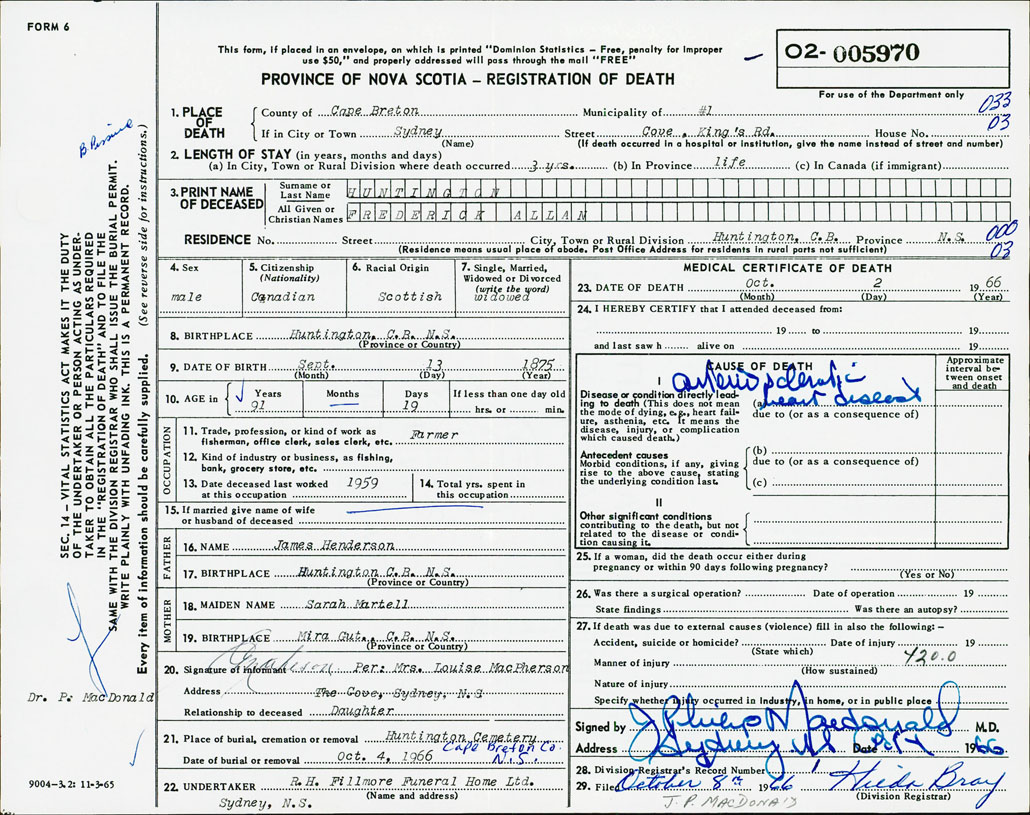 FORM 6
This form, if placed in an envelope, on which is printed "Dominion Statistics – Free, penalty for improper
use $50," and properly addressed will pass through the mail "FREE"
PROVINCE OF NOVA SCOTIA – REGISTRATION OF DEATH
02- 005970
For use of the Department only
1. PLACE OF DEATH
County of Cape Breton Municipality of #1 033
If in City or Town Sydney Street Cove, King's Rd. House No. 03
(Name) (If death occurred in a hospital or institution, give the name instead of street and number)
2. LENGTH OF STAY (in years, months and days)
(a) In City, Town or Rural Division where death occurred 3 yrs. (b) In Province life (c) In Canada (if immigrant)
3. PRINT NAME OF DECEASED
Surname or Last Name HUNTINGTON
All Given or Christian Names FREDERICK ALLAN
RESIDENCE No. Street City, Town or Rural Division Huntington, C.B. Province N.S. 000
(Residence means usual place of abode. Post Office Address for residents in rural parts not sufficient) 03
4. Sex
male
5. Citizenship
(Nationality)
Canadian
6. Racial Origin
Scottish
7. Single, Married,
Widowed or Divorced
(write the word)
widowed
8. BIRTHPLACE Huntington, C.B. N.S.
(Province or Country)
9. DATE OF BIRTH Sept. 13 1875
(Month) (Day) (Year)
10. AGE in Years Months Days If less than one day old
91 19 hrs. or min.
OCCUPATION
11. Trade, profession, or kind of work as
fisherman, office clerk, sales clerk, etc. Farmer
12. Kind of industry or business, as fishing,
bank, grocery store, etc.
13. Date deceased last worked
at this occupation 1959
14. Total yrs. spent in
this occupation
15. If married give name of wife
or husband of deceased
FATHER
16. NAME James Henderson
17. BIRTHPLACE Huntington C.B. N.S.
(Province or Country)
MOTHER
18. MAIDEN NAME Sarah Martell
19. BIRTHPLACE Mira Gut., C.B. N.S.
(Province or Country)
20. Signature of informant Per: Mrs. Louise MacPherson
Address The Cove, Sydney, N.S
Relationship to deceased Daughter
21. Place of burial, cremation or removal Huntington Cemetery
Cape Breton Co.
Date of burial or removal Oct. 4, 1966 N.S.
22. UNDERTAKER R.H. Fillmore Funeral Home Ltd.
(Name and address)
Sydney, N.S.
MEDICAL CERTIFICATE OF DEATH
23. DATE OF DEATH Oct. 2 1966
(Month) (Day) (Year)
24. I HEREBY CERTIFY that I attended deceased from:
19 to 19
and last saw h alive on 19
CAUSE OF DEATH
Approximate
interval be-
tween onset
and death
I
arteriosclerotic
Disease or condition directly lead-
ing to death (This does not mean
the mode of dying, e.g., heart fail-
ure, asthenia, etc. It means the
disease, injury, or complication
which caused death.)
(a) heart disease
due to (or as a consequence of)
Antecedent causes
Morbid conditions, if any, giving
rise to the above cause, stating
the underlying condition last.
(b)
due to (or as a consequence of)
(c)
II
Other significant conditions
contributing to the death, but not
related to the disease or condi-
tion causing it.
25. If a woman, did the death occur either during
pregnancy or within 90 days following pregnancy?
(Yes or No)
26. Was there a surgical operation? Date of operation 19
State findings Was there an autopsy?
27. If death was due to external causes (violence) fill in also the following: –
Accident, suicide or homicide? Date of injury 19
(State which)
Manner of injury 420.0
(How sustained)
Nature of injury
Specify whether injury occurred in industry, in home, or in public place
Signed by J Philip Macdonald M.D.
Address Sydney NS Date Oct 4 1966
28. Division Registrar's Record Number
29. Filed October 8th 1966 Hilda Bray
(Division Registrar)
J. P. MACDONALD
SEC. 14 – VITAL STATISTICS ACT MAKES IT THE DUTY
OF THE UNDERTAKER OR PERSON ACTING AS UNDER-
TAKER TO OBTAIN ALL THE PARTICULARS REQUIRED
IN THE "REGISTRATION OF DEATH" AND TO FILE THE
SAME WITH THE DIVISION REGISTRAR WHO SHALL ISSUE THE BURIAL PERMIT.
WRITE PLAINLY WITH UNFADING INK. THIS IS A PERMANENT RECORD.
Every item of information should be carefully supplied. (See reverse side for instructions.)
Dr. P. MacDonald
9004-3.2: 11-3-65